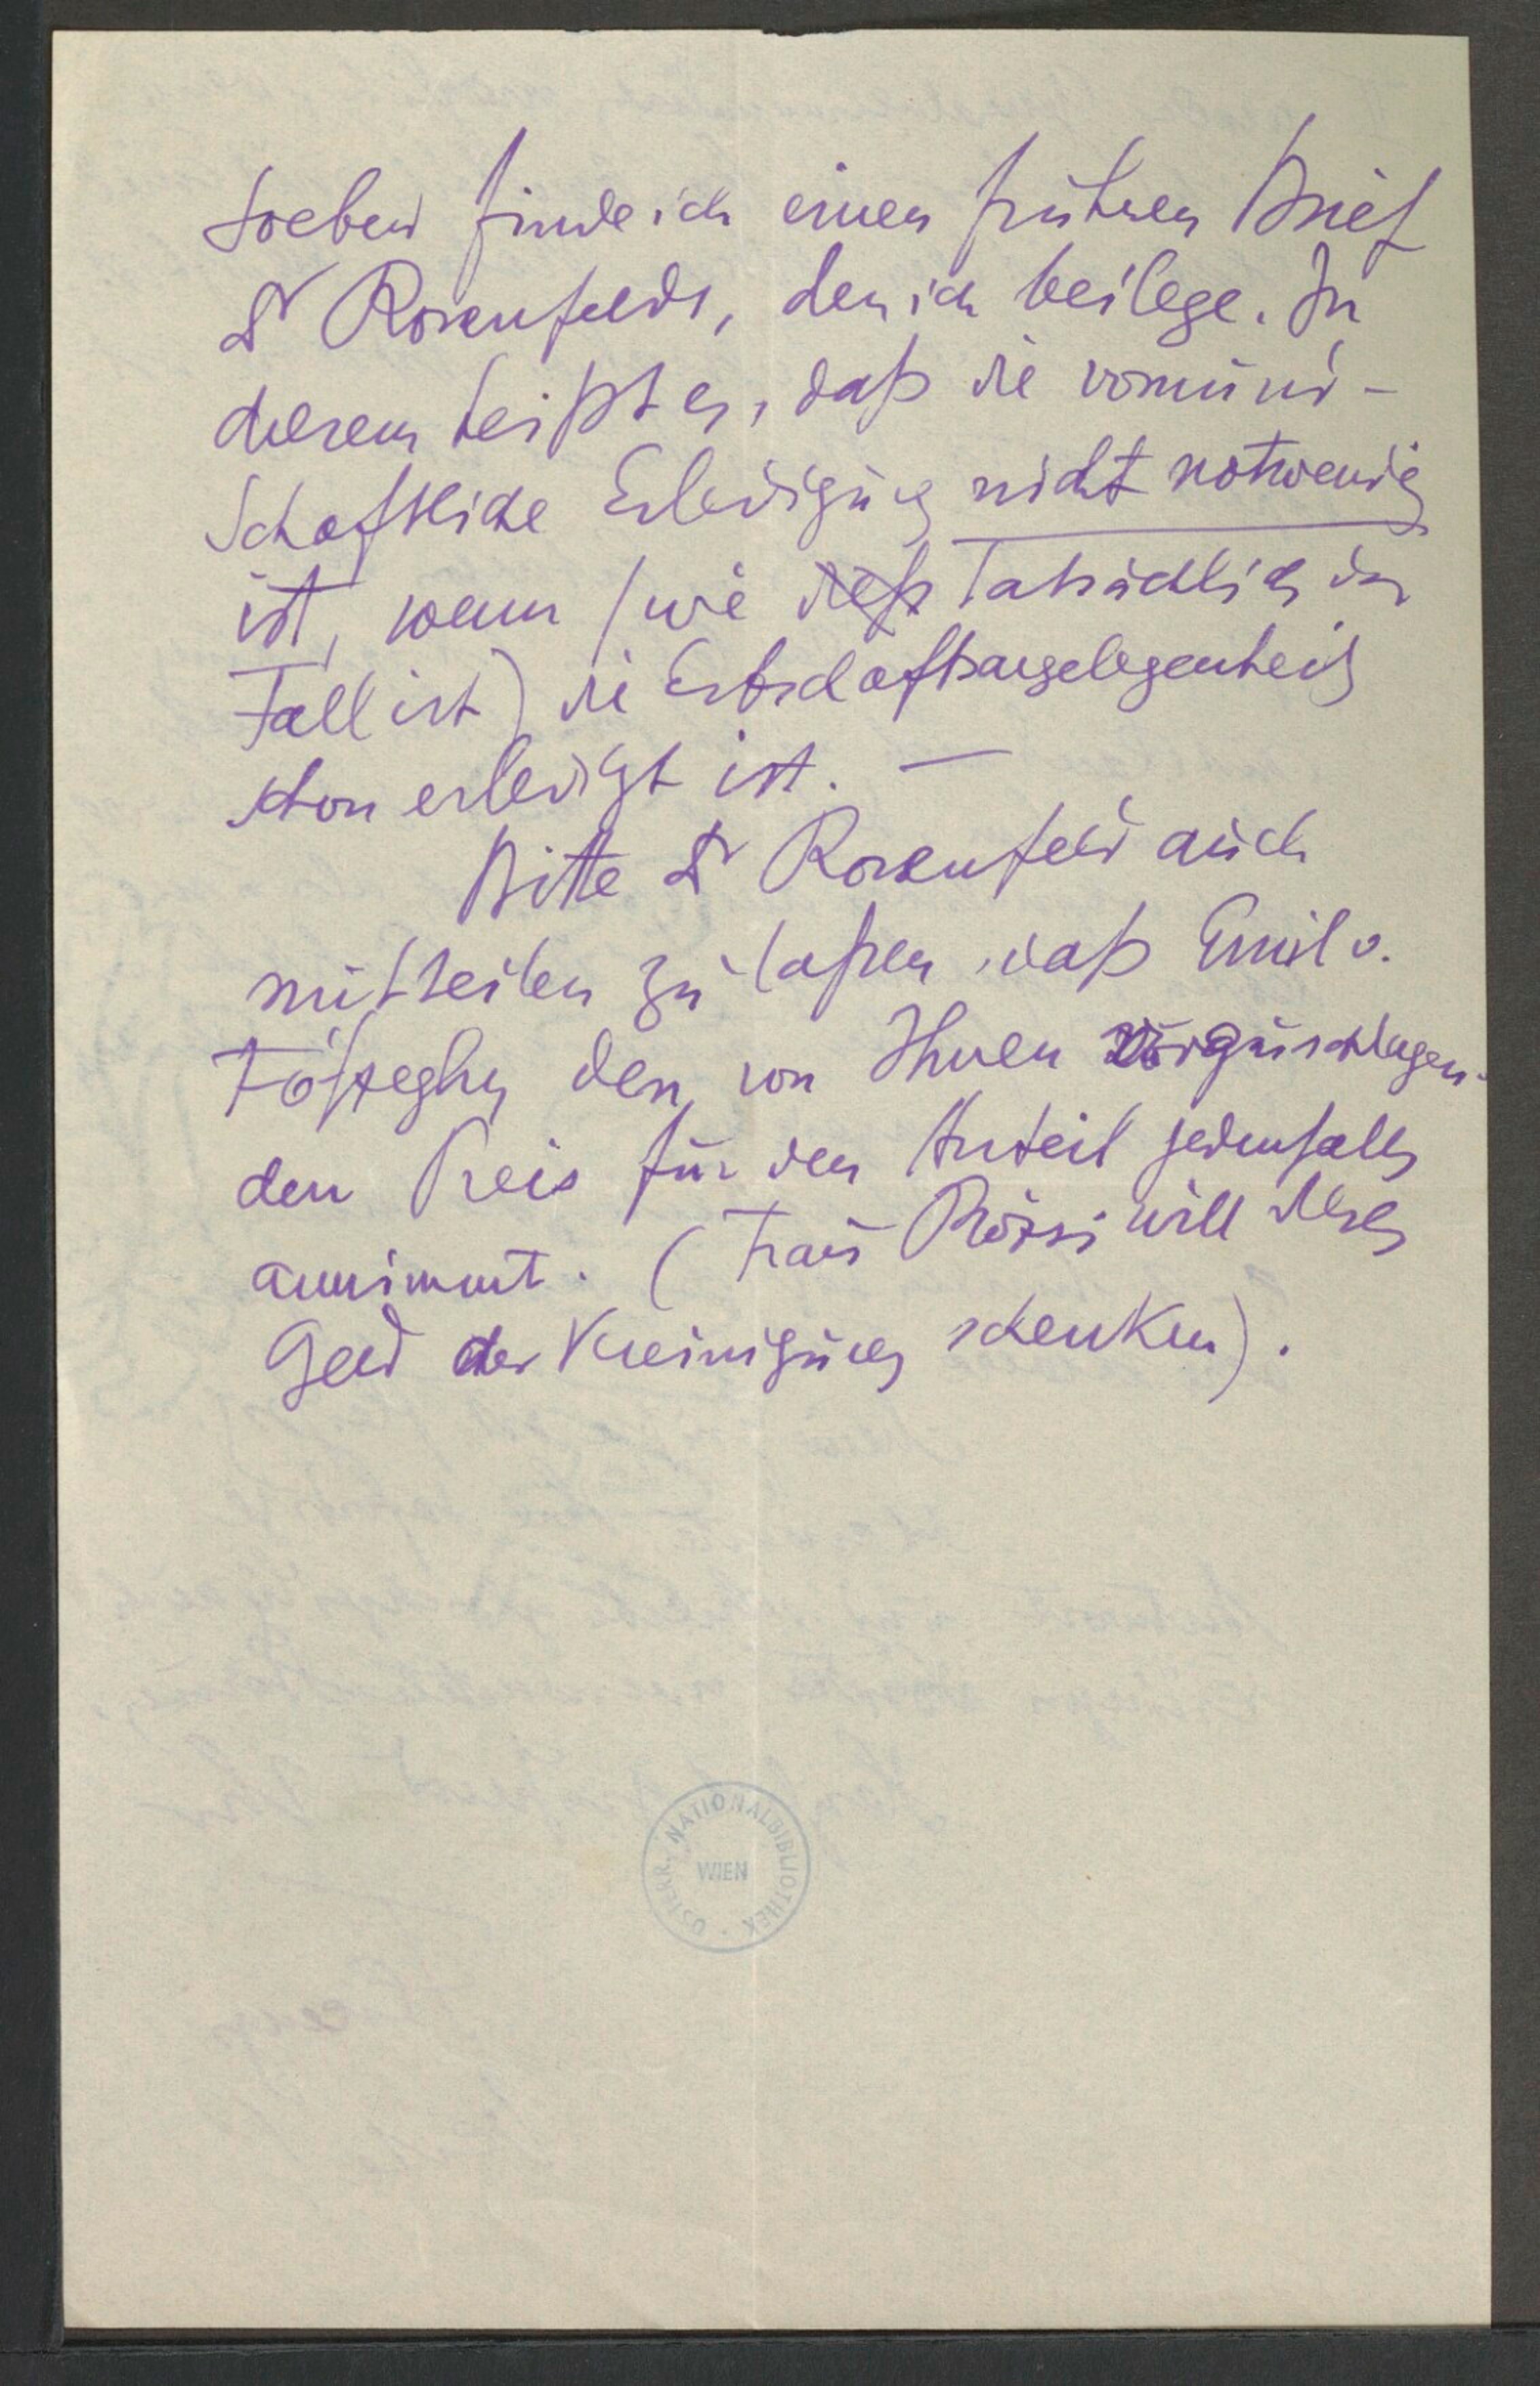 Soeben finde ich einen frühren Brief
Dr Rosenfelds, den ich beilege. In
diesem heißt es, daß die vormund-
schaftliche Erledigung nicht notwendig
ist, wenn (wie dieß tatsächlich der
Fall ist) die Erbschaftsangelegenheit
schon erledigt ist. —
Bitte Dr Rosenfeld auch
mitteilen zu laßen, daß Emil v.
Tószeghy den von Ihnen
den Preis für den Anteil jedenfalls
annimmt. (Frau Rózsi will dieses
Geld der Vereinigung schenken).
ÖSTERR. NATIONALBIBLIOTHEK · WIEN